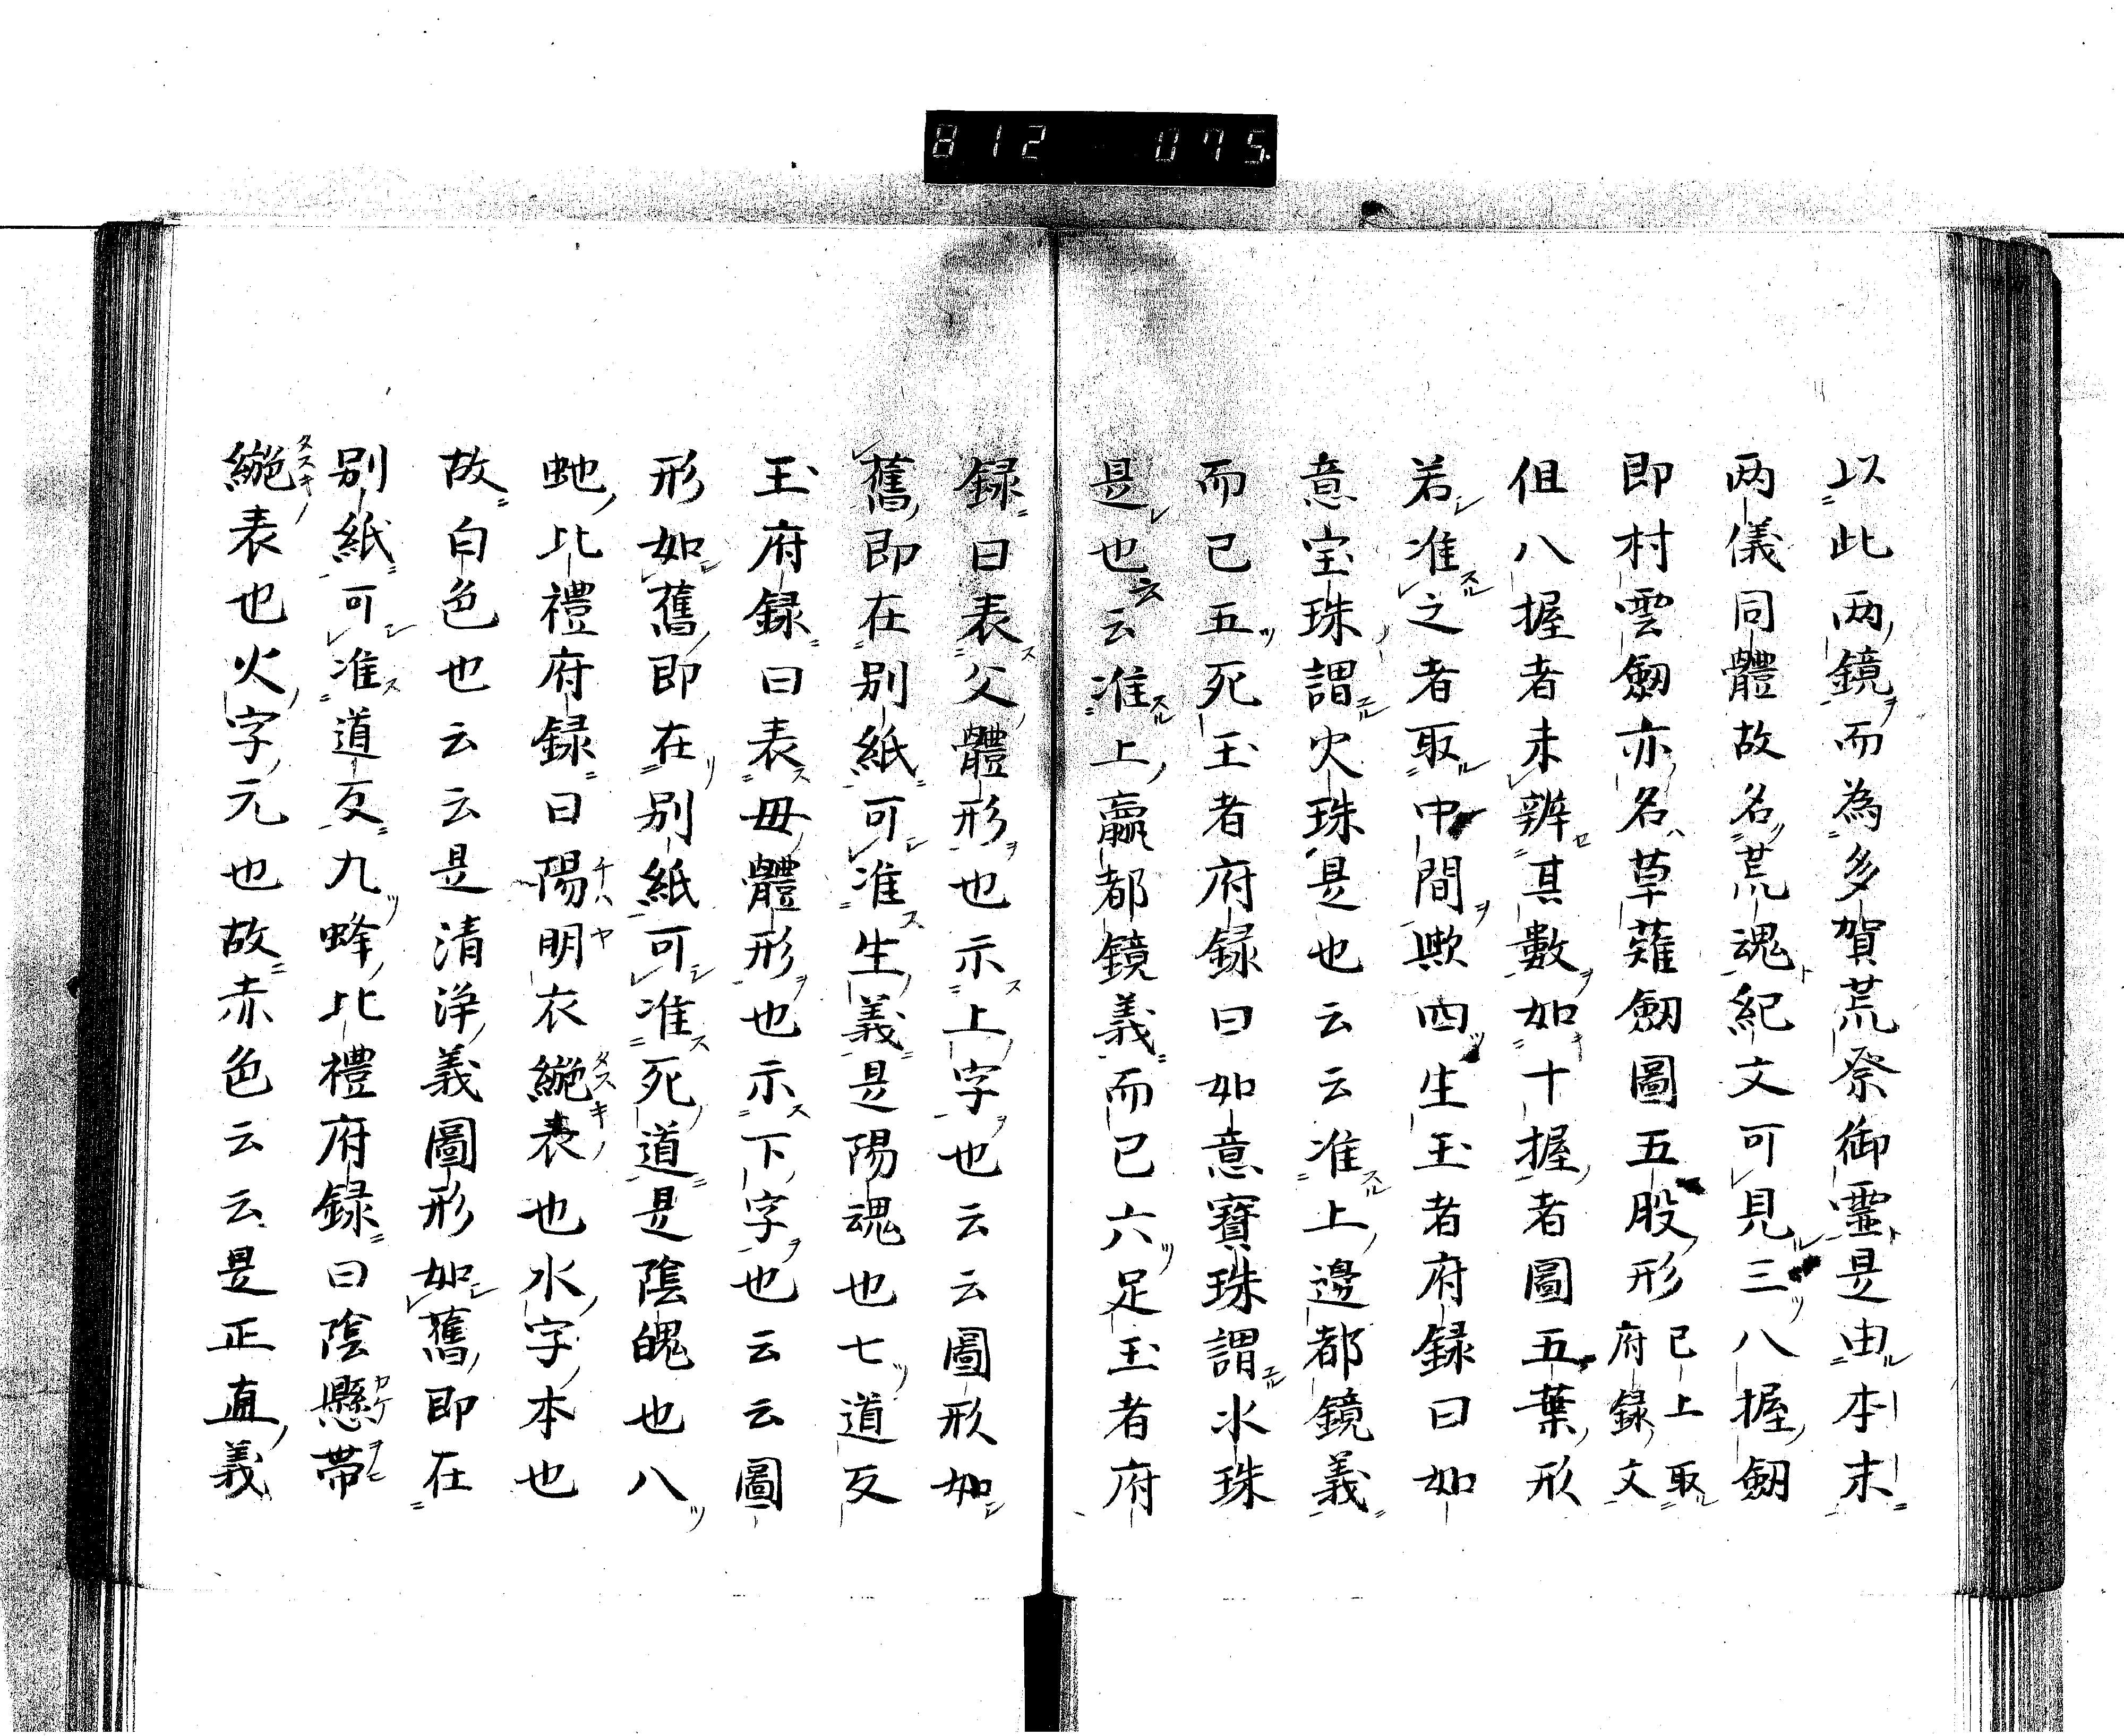 812 075.
以此两鏡而為多賀荒祭御霊是由本末
两儀同體故名荒魂紀文可見三八握劔
即村雲劔亦名草薙劔圖五股形已上取府録文
但八握者未辨其數如十握者圖五葉形
若准之者取中間歟四生玉者府録曰如
意宝珠謂火珠是也云云准上邊都鏡義
而已五死玉者府録曰如意寶珠謂水珠
是也云云准上羸都鏡義而已六足玉者府
録曰表父體形也示上字也云云圖形如
舊即在別紙可准生義是陽魂也七道反
玉府録曰表毋體形也示下字也云云圖
形如舊即在別紙可准死道是陰魄也八
虵比禮府録曰陽明衣繦表也水字本也
故白色也云云是清浄義圖形如舊即在
別紙可准道反九蜂比禮府録曰陰懸帶
繦表也火字元也故赤色云云是正直義